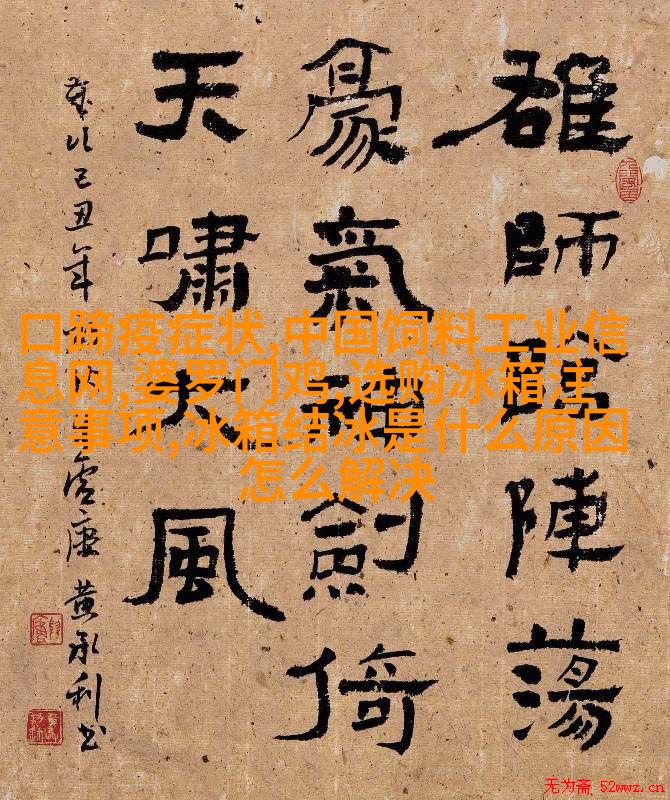 雄師陣蕩
豪氣劍倚
天嘯大風
歲次己丑年
黄永利书
口蹄疫症状,中国饲料工业信
息网,婆罗门鸡,选购冰箱注
意事项,冰箱结冰是什么原因
怎么解决
无为斋 52wwz.cn